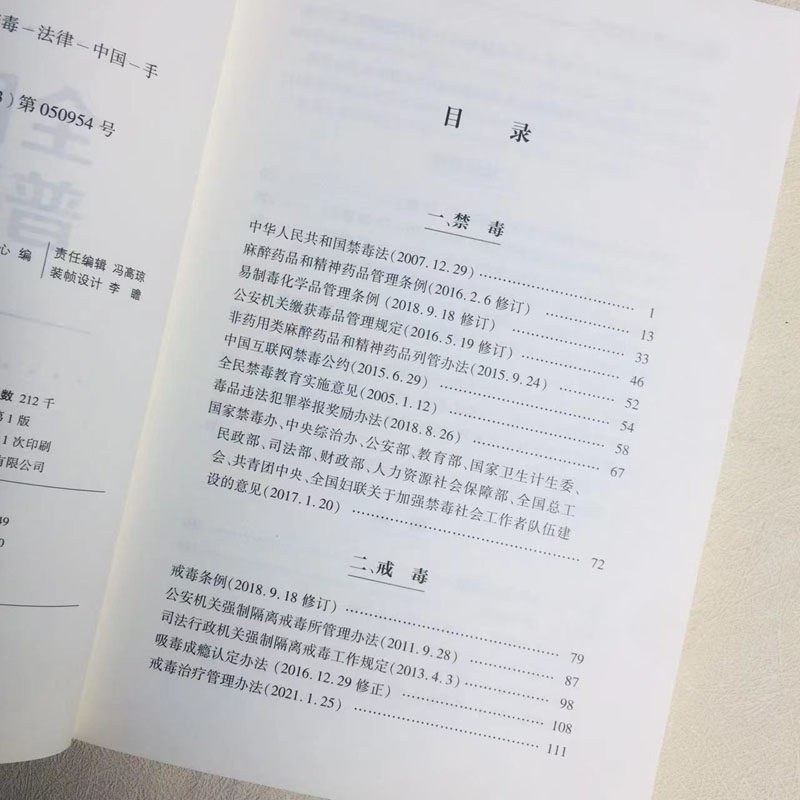 毒－法律－中国－手
）第 050954 号
心 编
责任编辑 冯高琼
装帧设计 李 瞻
数 212 千
第 1 版
1 次印刷
有限公司
49
0
目 录
一、禁 毒
中华人民共和国禁毒法(2007.12.29) 1
麻醉药品和精神药品管理条例(2016.2.6 修订) 13
易制毒化学品管理条例 (2018.9.18 修订) 33
公安机关缴获毒品管理规定(2016.5.19 修订) 46
非药用类麻醉药品和精神药品列管办法(2015.9.24) 52
中国互联网禁毒公约(2015.6.29) 54
全民禁毒教育实施意见(2005.1.12) 58
毒品违法犯罪举报奖励办法(2018.8.26) 67
国家禁毒办、中央综治办、公安部、教育部、国家卫生计生委、
民政部、司法部、财政部、人力资源社会保障部、全国总工
会、共青团中央、全国妇联关于加强禁毒社会工作者队伍建
设的意见(2017.1.20) 72
二、戒 毒
戒毒条例(2018.9.18 修订) 79
公安机关强制隔离戒毒所管理办法(2011.9.28) 87
司法行政机关强制隔离戒毒工作规定(2013.4.3) 98
吸毒成瘾认定办法 (2016.12.29 修正) 108
戒毒治疗管理办法(2021.1.25) 111